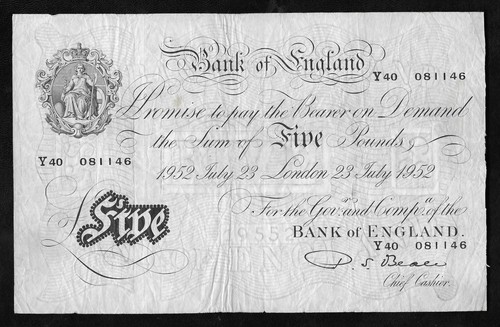 Bank of England
Y40 081146
I Promise to pay the Bearer on Demand
the Sum of Five Pounds
Y40 081146
1952 July 23 London 23 July 1952
For the Govr. and Compa. of the
BANK of ENGLAND.
Y40 081146
£Five
P. S. Beale
Chief Cashier.